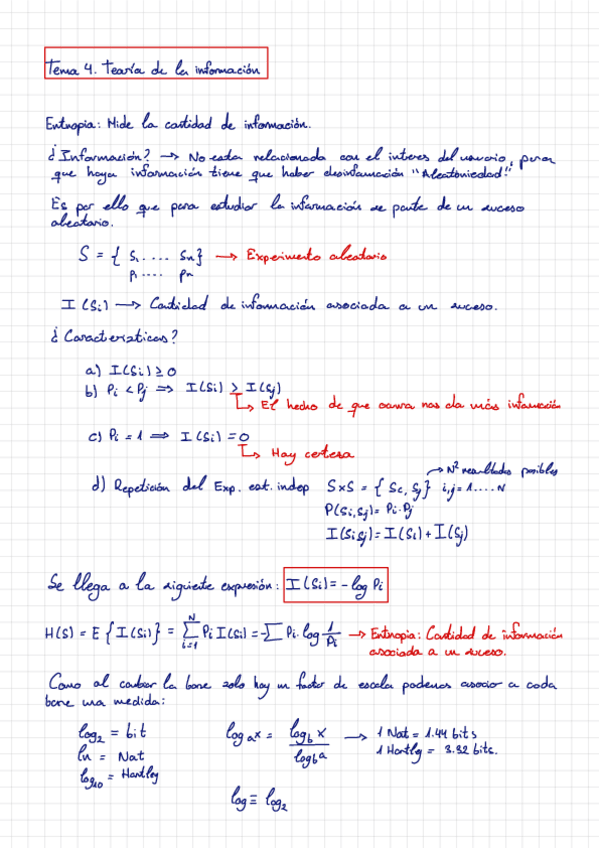 Tema 4. Teoría de la información
Entropia: Mide la cantidad de información.
¿Información? → No esta relacionada con el interes del usuario, para
que haya información tiene que haber desinformación "Aleatoriedad"
Es por ello que para estudiar la información se parte de un suceso
aleatorio.
S = { S₁ .... Sn} → Experimento aleatorio
p₁ .... pn
I (Si) → Cantidad de información asociada a un suceso.
¿Caracteristicas?
a) I(Si) ≥ 0
b) Pi < Pj ⇒ I(Si) > I(Sj)
↳ El hecho de que ocurra nos da más información
c) Pi = 1 ⇒ I(Si) = 0
↳ Hay certeza
→ N² resultados posibles
d) Repetición del Exp. est. indep S×S = { Si, Sj} i,j = 1....N
P(Si,Sj) = Pi·Pj
I(SiSj) = I(Si) + I(Sj)
Se llega a la siguiente expresión: I(Si) = - log Pi
H(S) = E {I(Si)} = ∑ᵢ₌₁ᴺ Pi I(Si) = -∑ Pi · log 1/Pi → Entropia: Cantidad de información
asociada a un suceso.
Como al cambiar la base solo hay un factor de escala podemos asociar a cada
base una medida:
log₂ = bit
ln = Nat
log₁₀ = Hartley
log a x = log b x / log b a → 1 Nat = 1.44 bits
1 Hartley = 3.32 bits.
log ≡ log₂